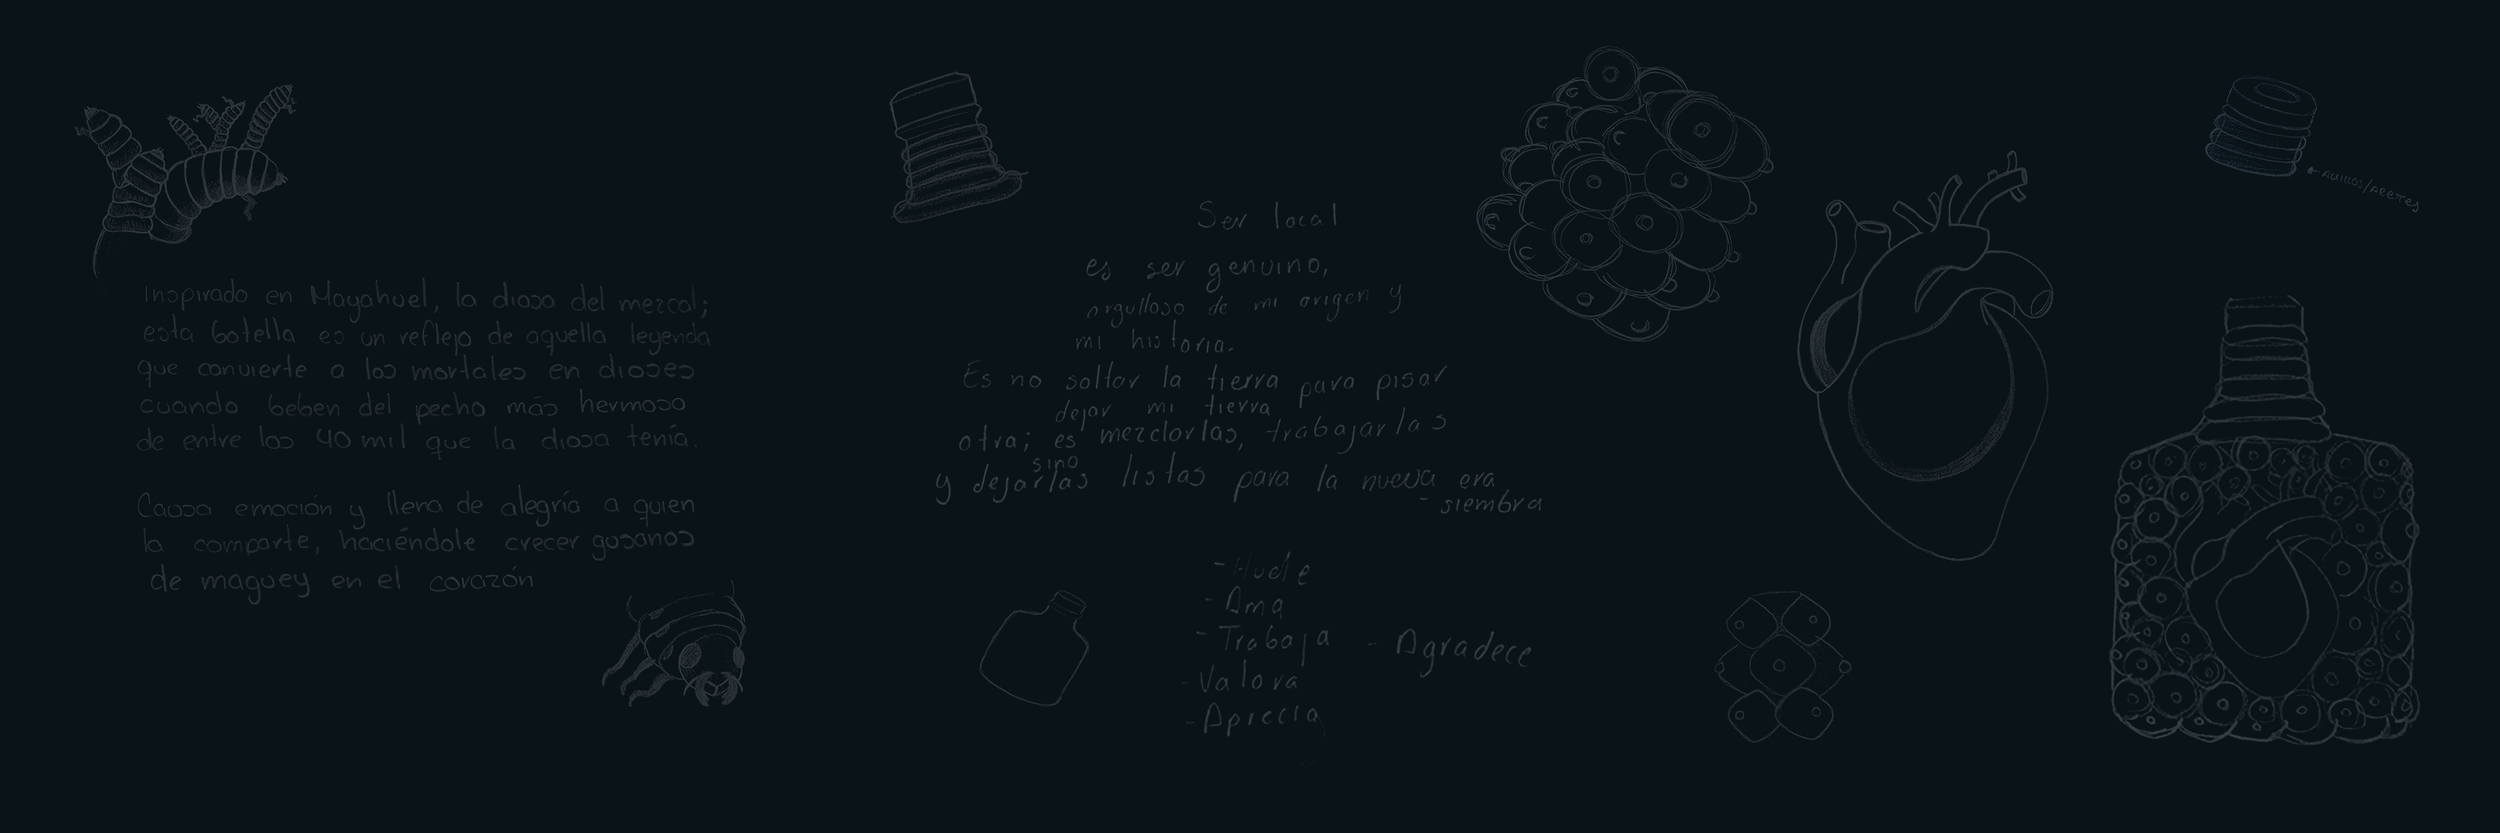 Inspirado en Mayahuel, la diosa del mezcal;
esta botella es un reflejo de aquella leyenda
que convierte a los mortales en dioses
cuando beben del pecho más hermoso
de entre los 40 mil que la diosa tenía.
Causa emoción y llena de alegría a quien
la comparte, haciéndole crecer gusanos
de maguey en el corazón
Ser local
es ser genuino,
orgulloso de mi origen y
mi historia.
Es no soltar la tierra para pisar
dejar mi tierra
otra; es mezclarlas, trabajarlas
sino
y dejarlas listas para la nueva era
- siembra
- Huele
- Ama
- Trabaja - Agradece
- Valora
- Aprecia
← Anillos/Aretes